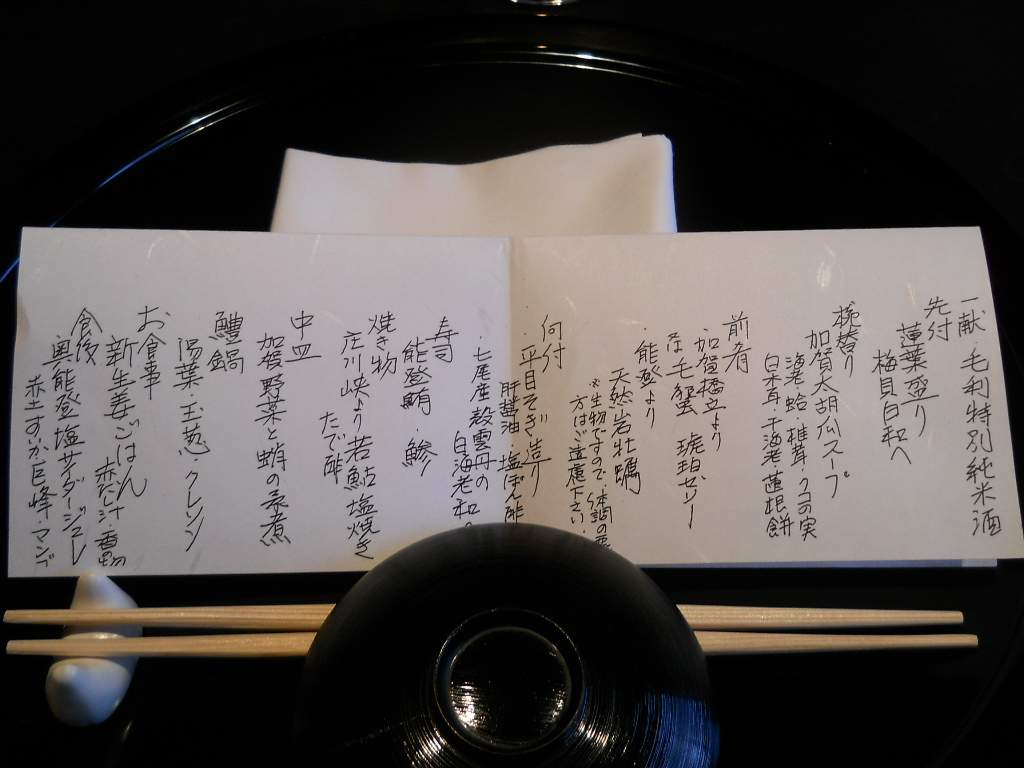 一献・毛利特別純米酒
先付
蓮葉盛り
梅貝白和へ
椀替り
加賀太胡瓜スープ
海老・蛤・椎茸・クコの実
白木耳・干海老・蓮根餅
前肴
・加賀橋立より
毛蟹 琥珀ゼリー
・能登より
天然岩牡蠣
※生物ですので、体調の悪
方はご遠慮下さい・
向付
・平目そぎ造り
肝醤油 塩ぽん酢
・七尾産殻雲丹の
白海老和
寿司
能登鮪・鰺
焼き物
庄川峡より若鮎塩焼き
たで酢
中皿
加賀野菜と蛸の柔煮
鱧鍋
湯葉・玉葱・クレソン
お食事
新生姜ごはん
赤だし汁・香物
食後
奥能登塩サイダージュレ
赤土すいか・巨峰・マンゴ